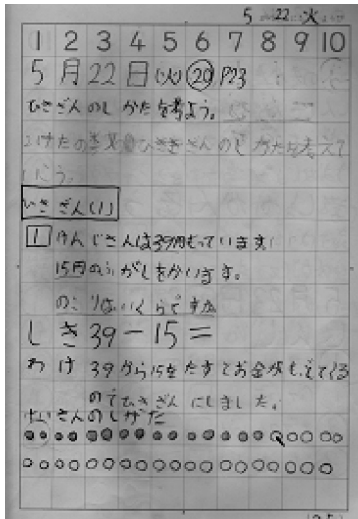 5 22 火
1 2 3 4 5 6 7 8 9 10
5月22日(火)⑳P73
ひきざんのしかたを考よう。
2けたのひきざんのしかたを考えて
いこう。
ひきざん(1)
1 けんじさんは39円もっています。
15円のふがしをかいます。
のこりはいくらですか
しき 39-15=
わけ 39から15をたすとお金が
のでひきざんにしました。
けいさんのしかた